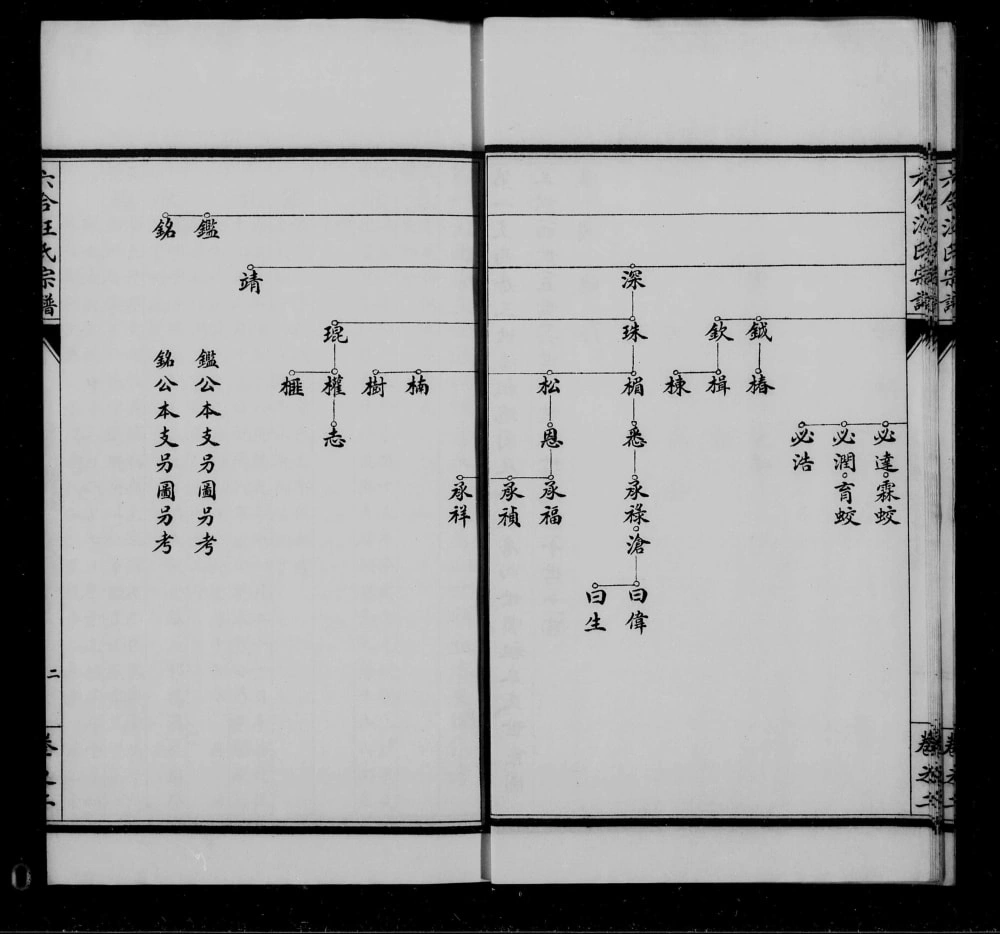 六合汪氏宗譜
卷之二
必達
霖蛟
必潤
育蛟
必浩
鉞
椿
欽
楫
棟
深
珠
楣
悉
承祿
滄
曰偉
曰生
松
恩
承福
承禎
承祥
楠
樹
琨
權
榧
志
靖
鑑
鑑公本支另圖另考
銘
銘公本支另圖另考
六合汪氏宗譜
二
卷之二